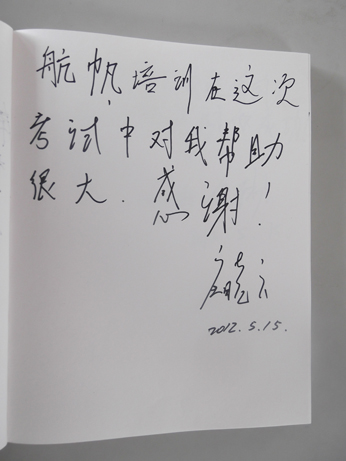 航帆培训在这次
考试中对我帮助
很大.感谢!
2012.5.15.